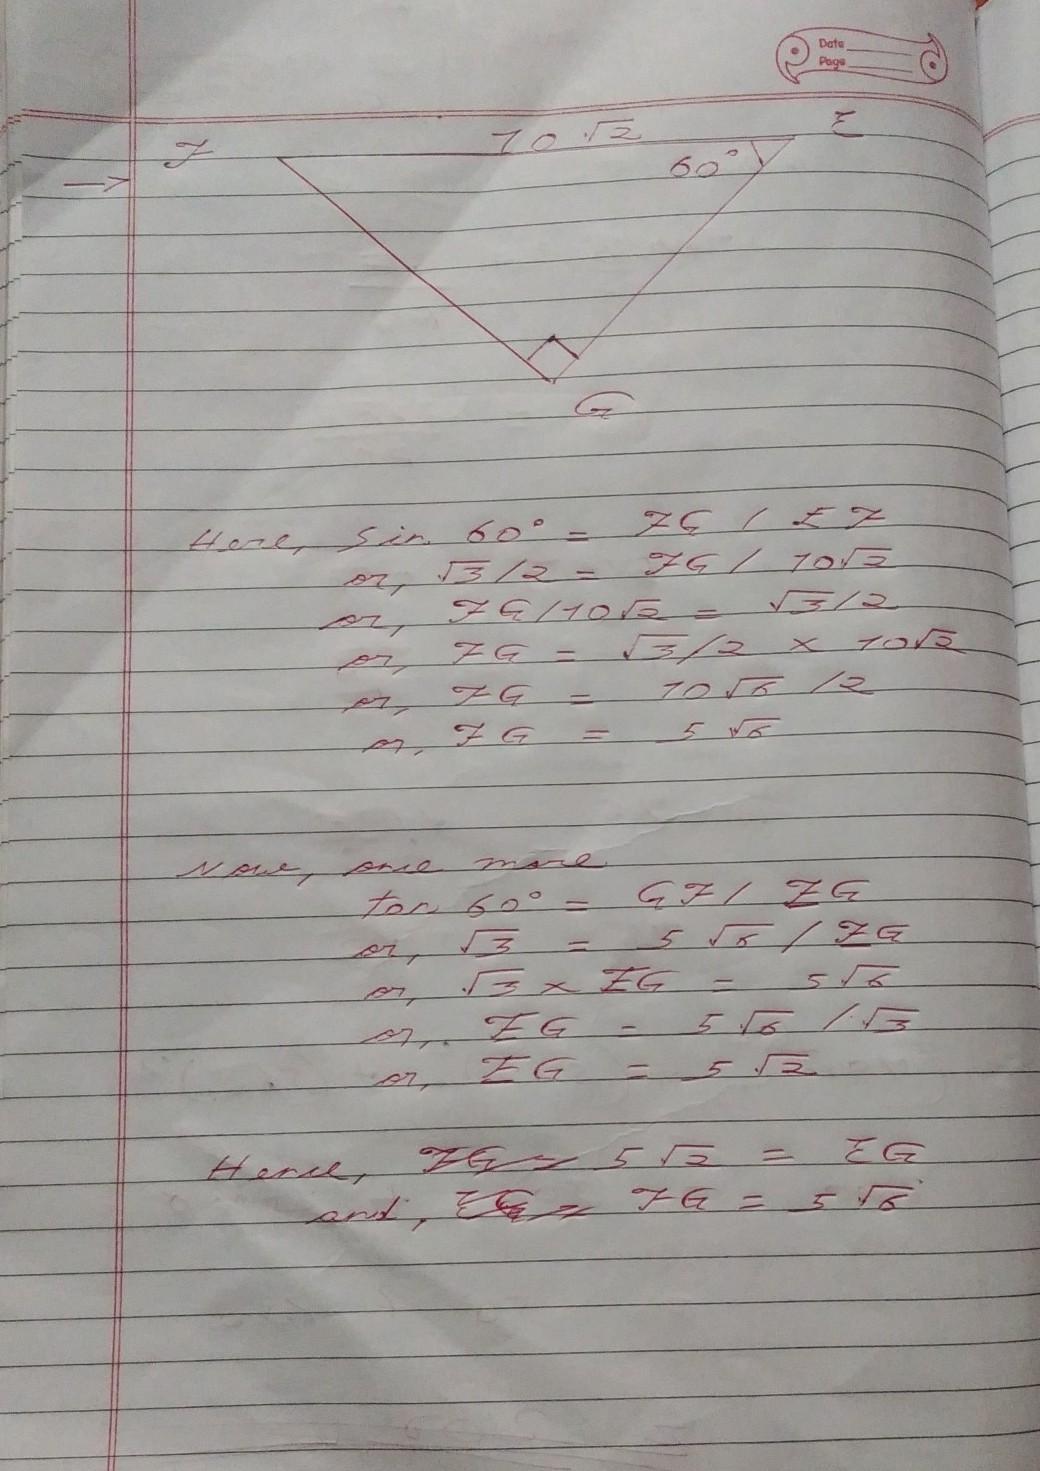 Date
Page
F 10√2 E
60°
G
Here, Sin 60° = FG / EF
or, √3/2 = FG / 10√2
or, FG/10√2 = √3/2
or, FG = √3/2 × 10√2
or, FG = 10√6 /2
or, FG = 5√6
Now, once more
tan 60° = GF / EG
or, √3 = 5√6 / EG
or, √3 × EG = 5√6
or, EG = 5√6 / √3
or, EG = 5√2
Hence, 5√2 = EG
and, FG = 5√6